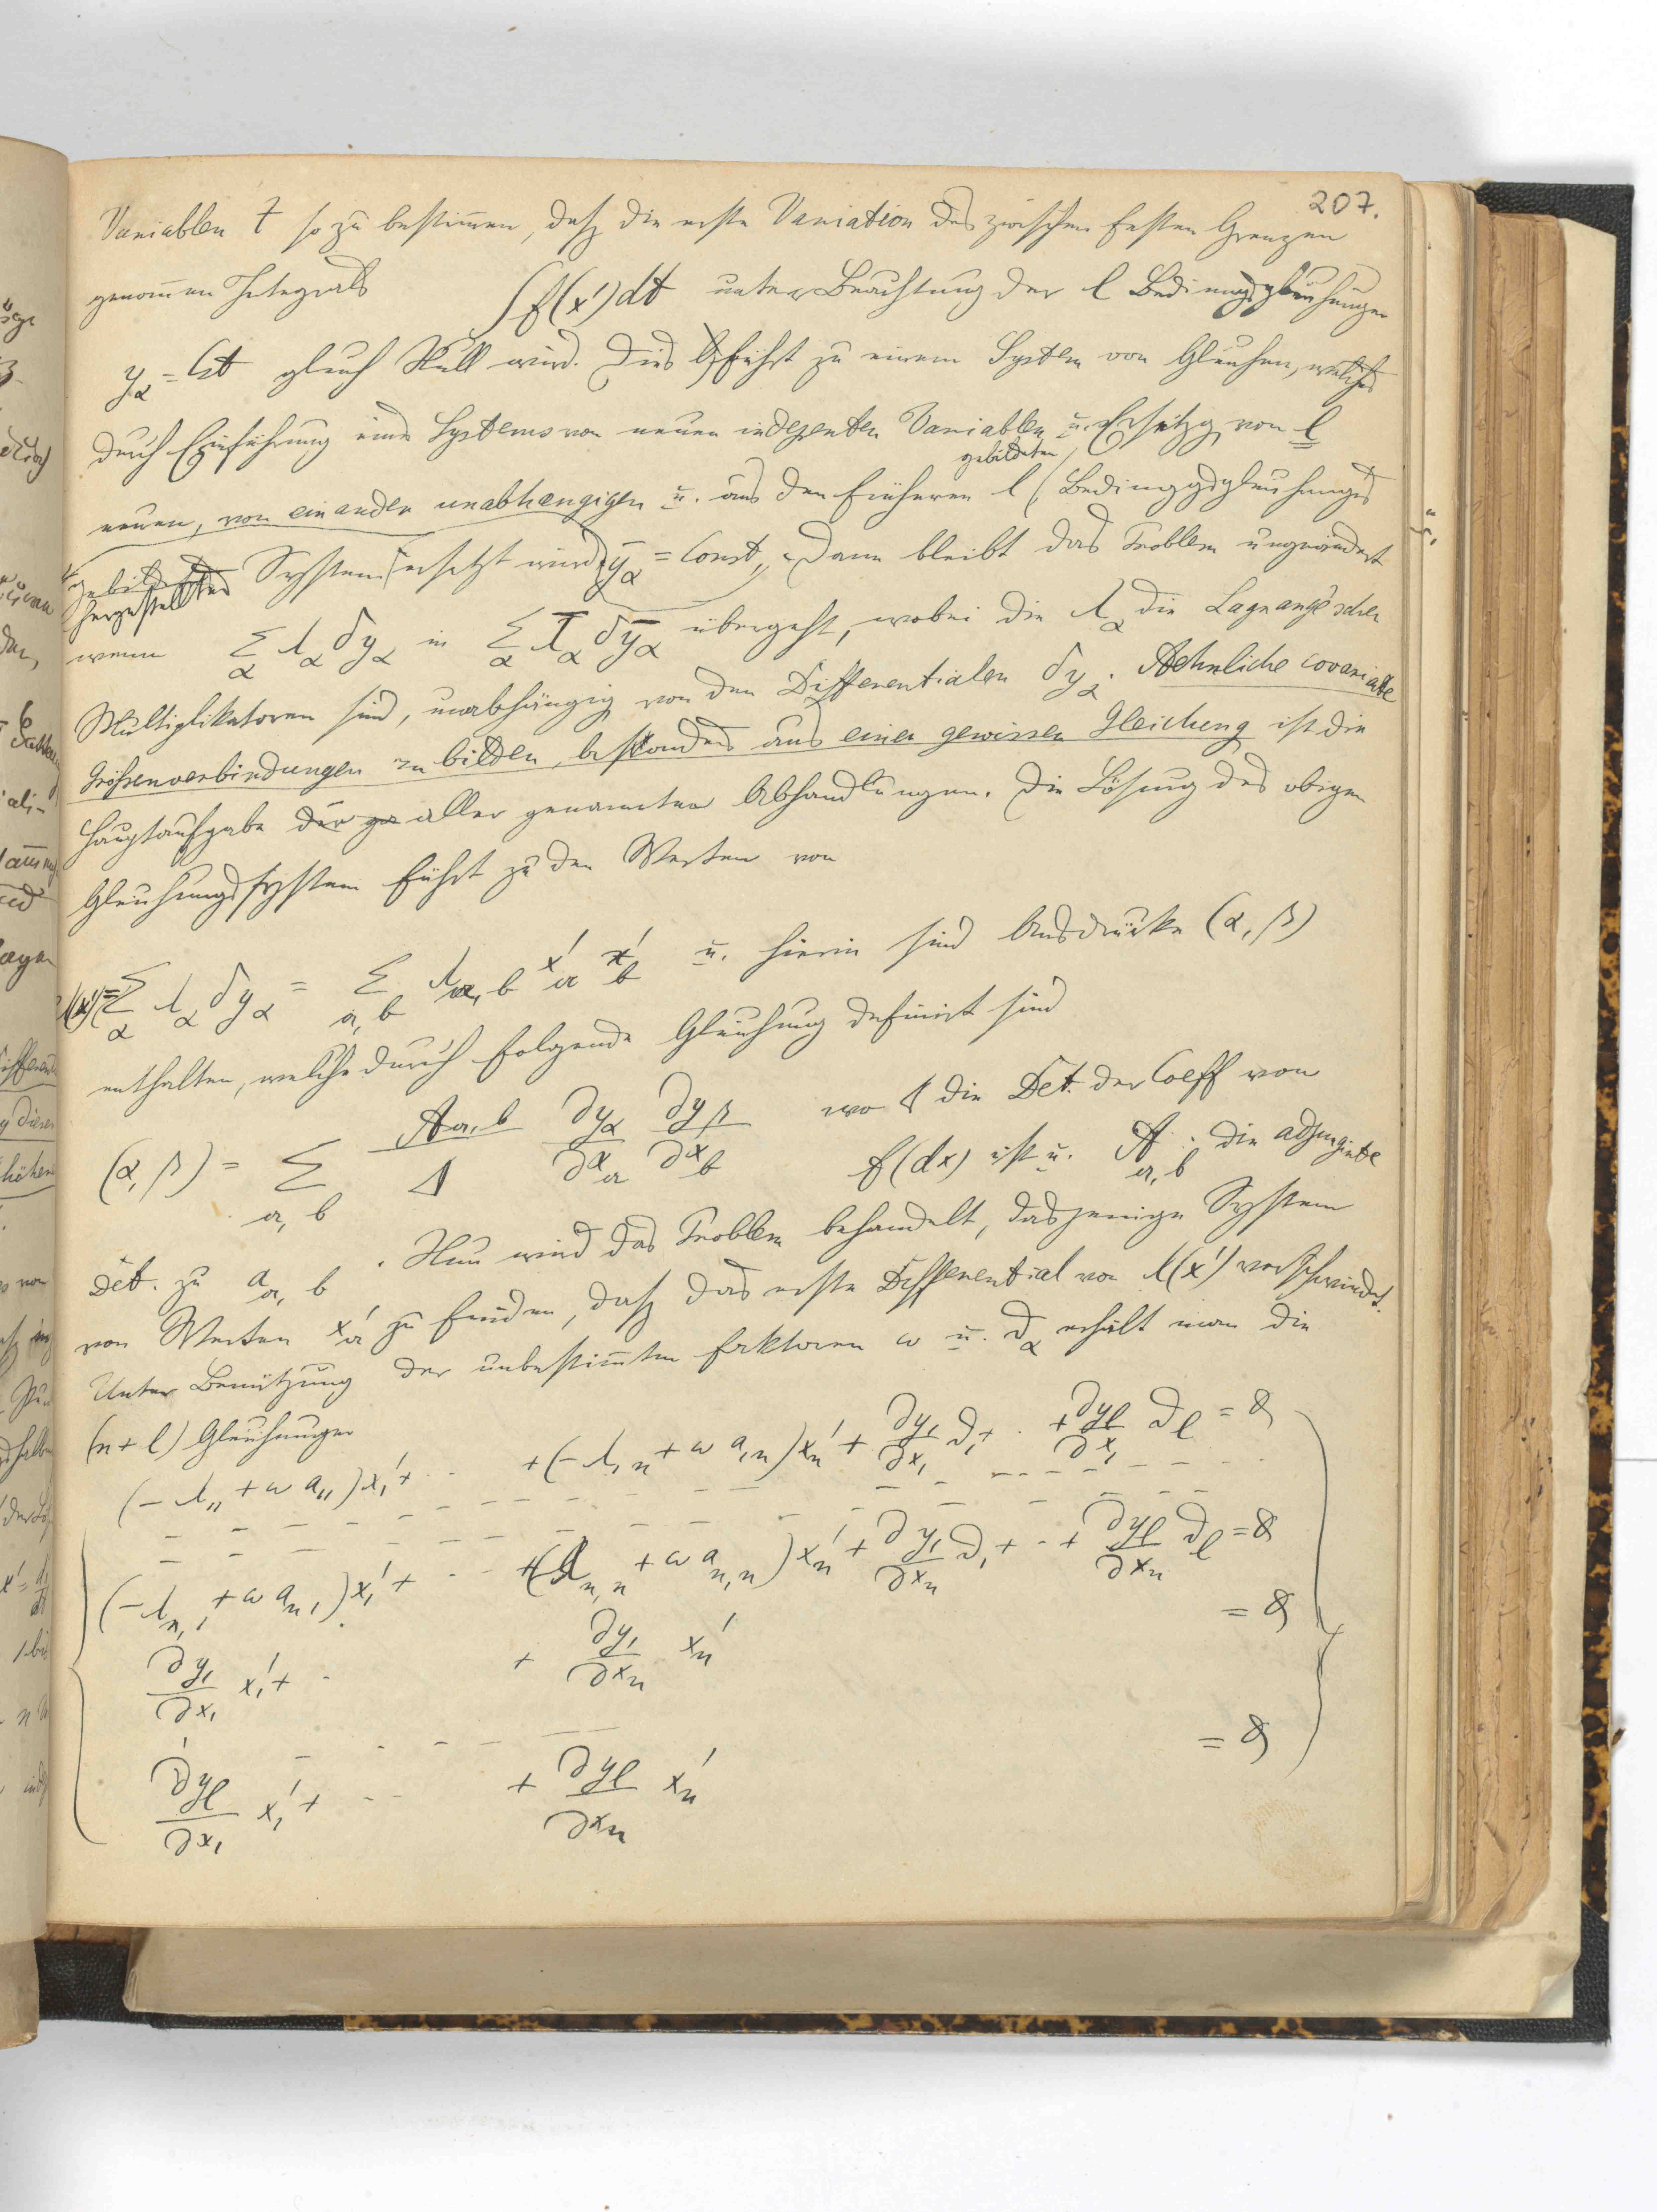 207.
Variablen t so zu bestim̄en, daß die erste Variation des zwischen festen Grenzen
genom̄enen Integrals ∫f(x')dt unter Beachtung der l Bedingungsgleichungen
y_α = Cst gleich Null wird. Dies führt zu einem System von Gleichen, welches
durch Einführung eines Systems von neuen indegenten Variablen u. Ersetzg von l
neuen, von einander unabhaengigen u. aus den früheren l (Bedinggsgleichungs
gebildeten
gebildetes System ersetzt wird ȳ_α = Const, . Dann bleibt das Problem ungeändert
hergestelltes
wenn Σ_α λ_α δy_α in Σ_α λ̄_α δȳ_α übergeht, wobei die λ_α die Lagrange'schen
Multiplikatoren sind, unabhängig von den Differentialen δy_α. Aehnliche covariante
Größenverbindungen zu bilden, besonders aus einer gewissen Gleichung ist die
Hauptaufgabe der aller genannten Abhandlungen. Die Lösung des obigen
Gleichungssystem führt zu den Werten von
λ(x')= Σ_α λ_α δy_α = Σ_{a,b} λ_{a,b} x'_a x'_b u. hierin sind Ausdrücke (α, β)
enthalten, welche durch folgende Gleichung definirt sind
(α, β) = Σ_{a,b} A_{a,b}/Δ ∂y_α/∂x_a ∂y_β/∂x_b wo Δ die Det. der Coeff von
f(dx) ist u. A_{a,b} die adjungirte
Det. zu a_{a,b}. Nun wird das Problem behandelt, dasjenige System
von Werten x'_a zu finden, daß das erste Differential von λ(x') verschwindet.
Unter Benützung der unbestim̄ten Faktoren ω u. ∂_α erhält man die
(n + l) Gleichungen
(-λ_{11} + ω a_{11})x'_1 + · · + (-λ_{1n} + ω a_{1n})x'_n + ∂y_1/∂x_1 ∂_1 + · + ∂y_l/∂x_1 ∂_l = 0
(-λ_{n,1} + ω a_{n1})x'_1 + · · + (λ_{n,n} + ω a_{n,n})x'_n + ∂y_1/∂x_n ∂_1 + · + ∂y_l/∂x_n ∂_l = 0
∂y_1/∂x_1 x'_1 + · + ∂y_1/∂x_n x'_n = 0
∂y_l/∂x_1 x'_1 + · · + ∂y_l/∂x_n x'_n = 0